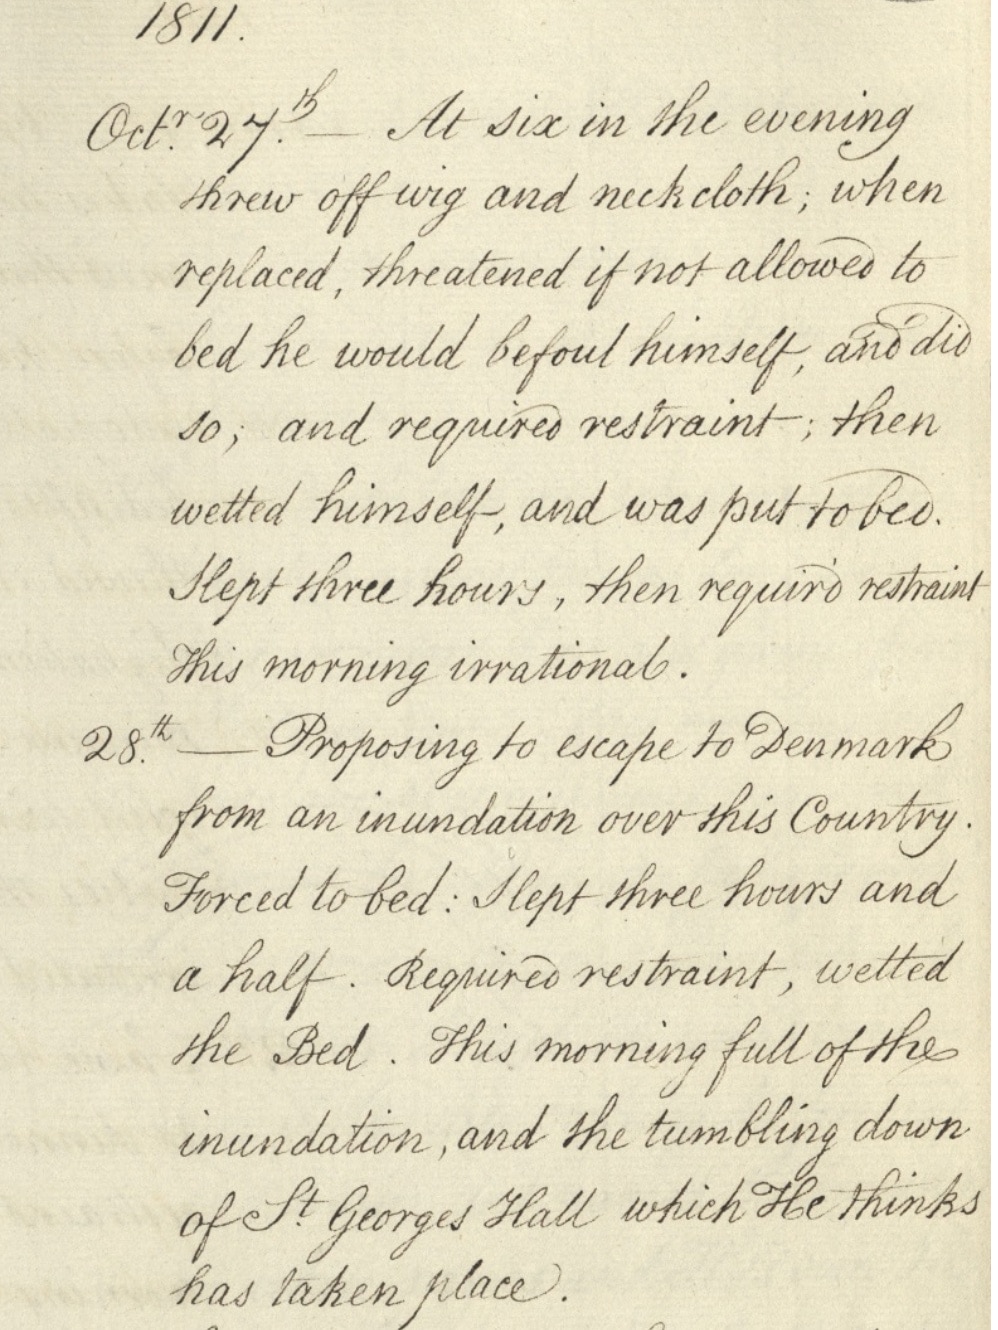 1811.
Octr. 27.th — At six in the evening
threw off wig and neckcloth; when
replaced, threatened if not allowed to
bed he would befoul himself, and did
so; and required restraint; then
wetted himself, and was put to bed.
Slept three hours, then requir'd restraint
This morning irrational.
28.th — Proposing to escape to Denmark
from an inundation over this Country.
Forced to bed: Slept three hours and
a half. Required restraint, wetted
the Bed. This morning full of the
inundation, and the tumbling down
of St Georges Hall which He thinks
has taken place.